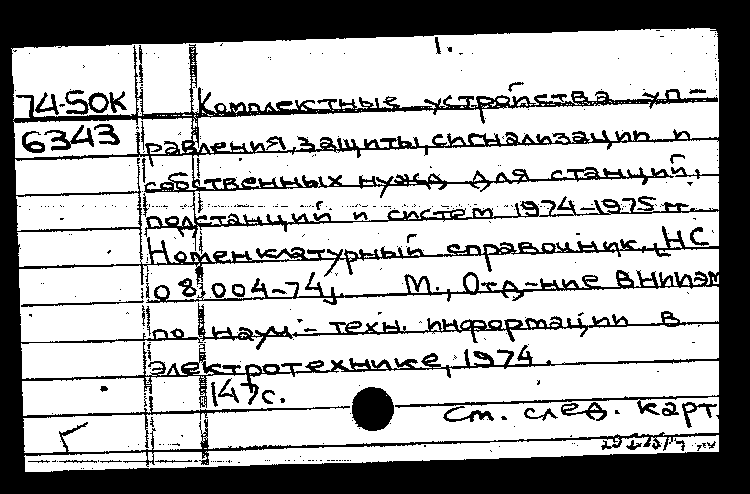 1.
74-50К
6343
Комплектные устройства уп-
равления, защиты, сигнализации и
собственных нужд для станций,
подстанций и систем 1974-1975 гг.
Номенклатурный справочник, [НС
08.004-74]. М., Отд-ние ВНИИЭМ
по науч.-техн. информации в
электротехнике, 1974.
147с.
См. след. карт.